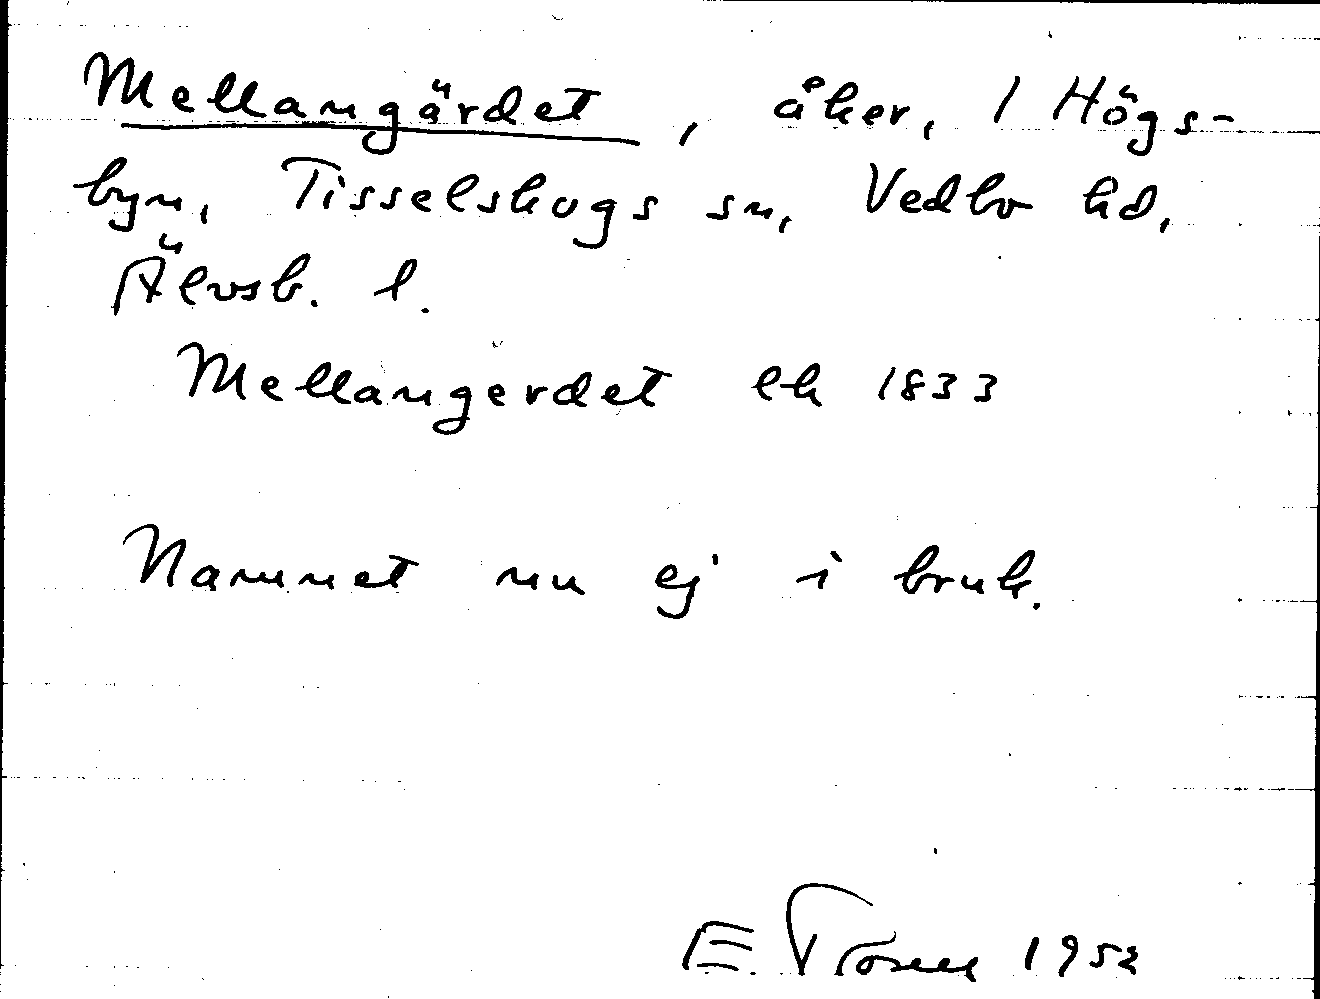 Mellangärdet, åker, 1 Högs-
byn, Tisselskogs sn, Vedbo hd,
Älvsb. l.
Mellangerdet lk 1833
Namnet nu ej i bruk.
E. 1952